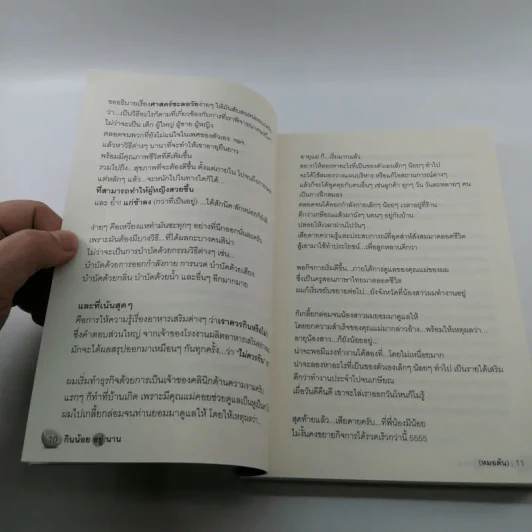 ขออธิบายเรื่องศาสตร์ชะลอวัยง่ายๆ ให้มันสับสนน้อยลง
ว่า...เป็นวิธีอะไรก็ตามที่เกี่ยวข้องกับการที่เรา
ไม่ว่าจะเป็น เด็ก ผู้ใหญ่ ผู้ชาย ผู้หญิง
ตลอดจนพวกที่ยังไม่แน่ใจในเพศของตัวเอง ฯลฯ
แล้วหาวิธีต่างๆ นานาที่จะทำให้เขาอายุยืนยาว
พร้อมมีคุณภาพชีวิตที่ดีเพิ่มขึ้น
รวมไปถึง...สุขภาพที่จะต้องดีขึ้น ตั้งแต่ภายใน ไปจนถึงภายนอก
แต่หลักๆ แล้ว...จะหนักไปในทางใดก็ได้
ที่สามารถทำให้ผู้หญิงสวยขึ้น
และ ย้ำ! แก่ช้าลง (กว่าที่เป็นอยู่)...ได้สักนิด-สักหน่อยก็ยังดี
ง่ายๆ คือเหวี่ยงแหทำมันซะทุกๆ อย่างที่นึกออกนั่นละครับ
เพราะมันต้องมีบางวิธี...ที่ได้ผลกะบางคนสิน่า
ไม่ว่าจะเป็นการบำบัดด้วยกรรมวิธีต่างๆ เช่น...
บำบัดด้วยการออกกำลังกาย การนวด บำบัดด้วยเสียง
บำบัดด้วยกลิ่น บำบัดด้วยน้ำ และอื่นๆ อีกมากมาย
และที่เน้นสุดๆ
คือการให้ความรู้เรื่องอาหารเสริมต่างๆ ว่าเราควรกินหรือไม่
ซึ่งคำตอบส่วนใหญ่ จากเจ้าของโรงงานผลิตอาหารเสริม
มักจะได้ผลสรุปออกมาเหมือนๆ กันทุกครั้ง...ว่า
ผมเริ่มทำธุรกิจด้วยการเป็นเจ้าของคลินิกด้านความงามครับ
แรกๆ ก็ทำที่บ้านเกิด เพราะมีคุณแม่คอยช่วยดูแลเป็นหูเป็นตา
ผมไปเกลี้ยกล่อมจนท่านยอมมาดูแลให้ โดยให้เหตุผลว่า...
10 กินน้อย อยู่ นาน
อายุแม่ ก็...เริ่มมากแล้ว
อยากให้ลองหาอะไรที่เป็นของตัวเองเล็กๆ น้อยๆ ทำไป
จะได้ใช้สมองวางแผนบริหาร หรือแก้ไขสถานการณ์ต่างๆ
แล้วก็จะได้คุยกับคนอื่นๆ เช่นลูกค้า ทุกๆ วัน วันละหลายๆ คน
เป็นการฝึกสมอง
ตลอดจนได้ออกกำลังกายเล็กๆ น้อยๆ เวลาอยู่ที่ร้าน
ดีกว่าเกษียณแล้วมานั่งๆ นอนๆ อยู่กับบ้าน
ปล่อยให้เวลาผ่านไปวันๆ
เสียดายความรู้และประสบการณ์ที่อุตส่าห์สั่งสมมาตลอดชีวิต
สู้เอามาใช้ทำประโยชน์...เพื่อลูกหลานดีกว่า
พอกิจการเริ่มดีขึ้น...ภายใต้การดูแลของคุณแม่ของผม
ซึ่งเป็นครูสอนภาษาไทยมาตลอดชีวิต
ผมก็เริ่มขยับขยายต่อไป...ยังจังหวัดที่น้องสาวผมทำงานอยู่
ก็เกลี้ยกล่อมจนน้องสาวผมยอมมาดูแลให้
โดยยกความสำเร็จของคุณแม่มากล่าวอ้าง...พร้อมให้เหตุผลว่า...
อายุน้องสาว...ก็ยังน้อยอยู่...
น่าจะพอมีแรงทำงานได้สองที่...โดยไม่เหนื่อยมาก
น่าจะลองหาอะไรที่เป็นของตัวเองเล็กๆ น้อยๆ ทำไป เป็นรายได้เสริม
ดีกว่าทำงานประจำไปจนเกษียณ
เผื่อวันดีคืนดี เขาจะไล่เราออกวันไหนก็ไม่รู้
สุดท้ายแล้ว...เสียดายครับ...ที่พี่น้องมีน้อย
ไม่งั้นคงขยายกิจการได้รวดเร็วกว่านี้ 5555
(หมอตั้น) | 11